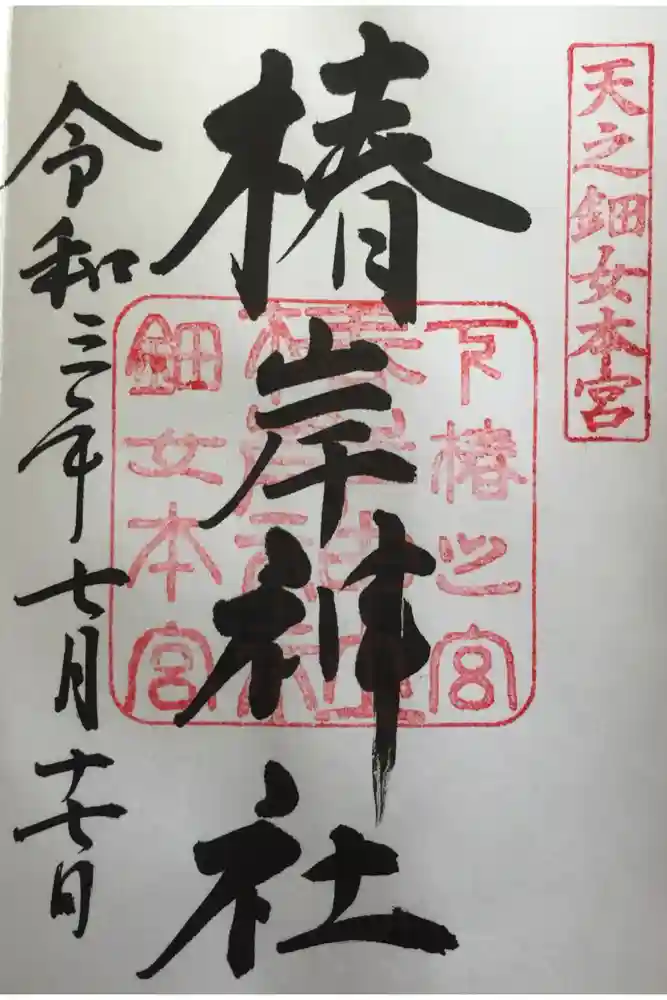 天之鈿女本宮
下椿之宮
椿岸神社
鈿女本宮
椿岸神社
令和三年七月十七日